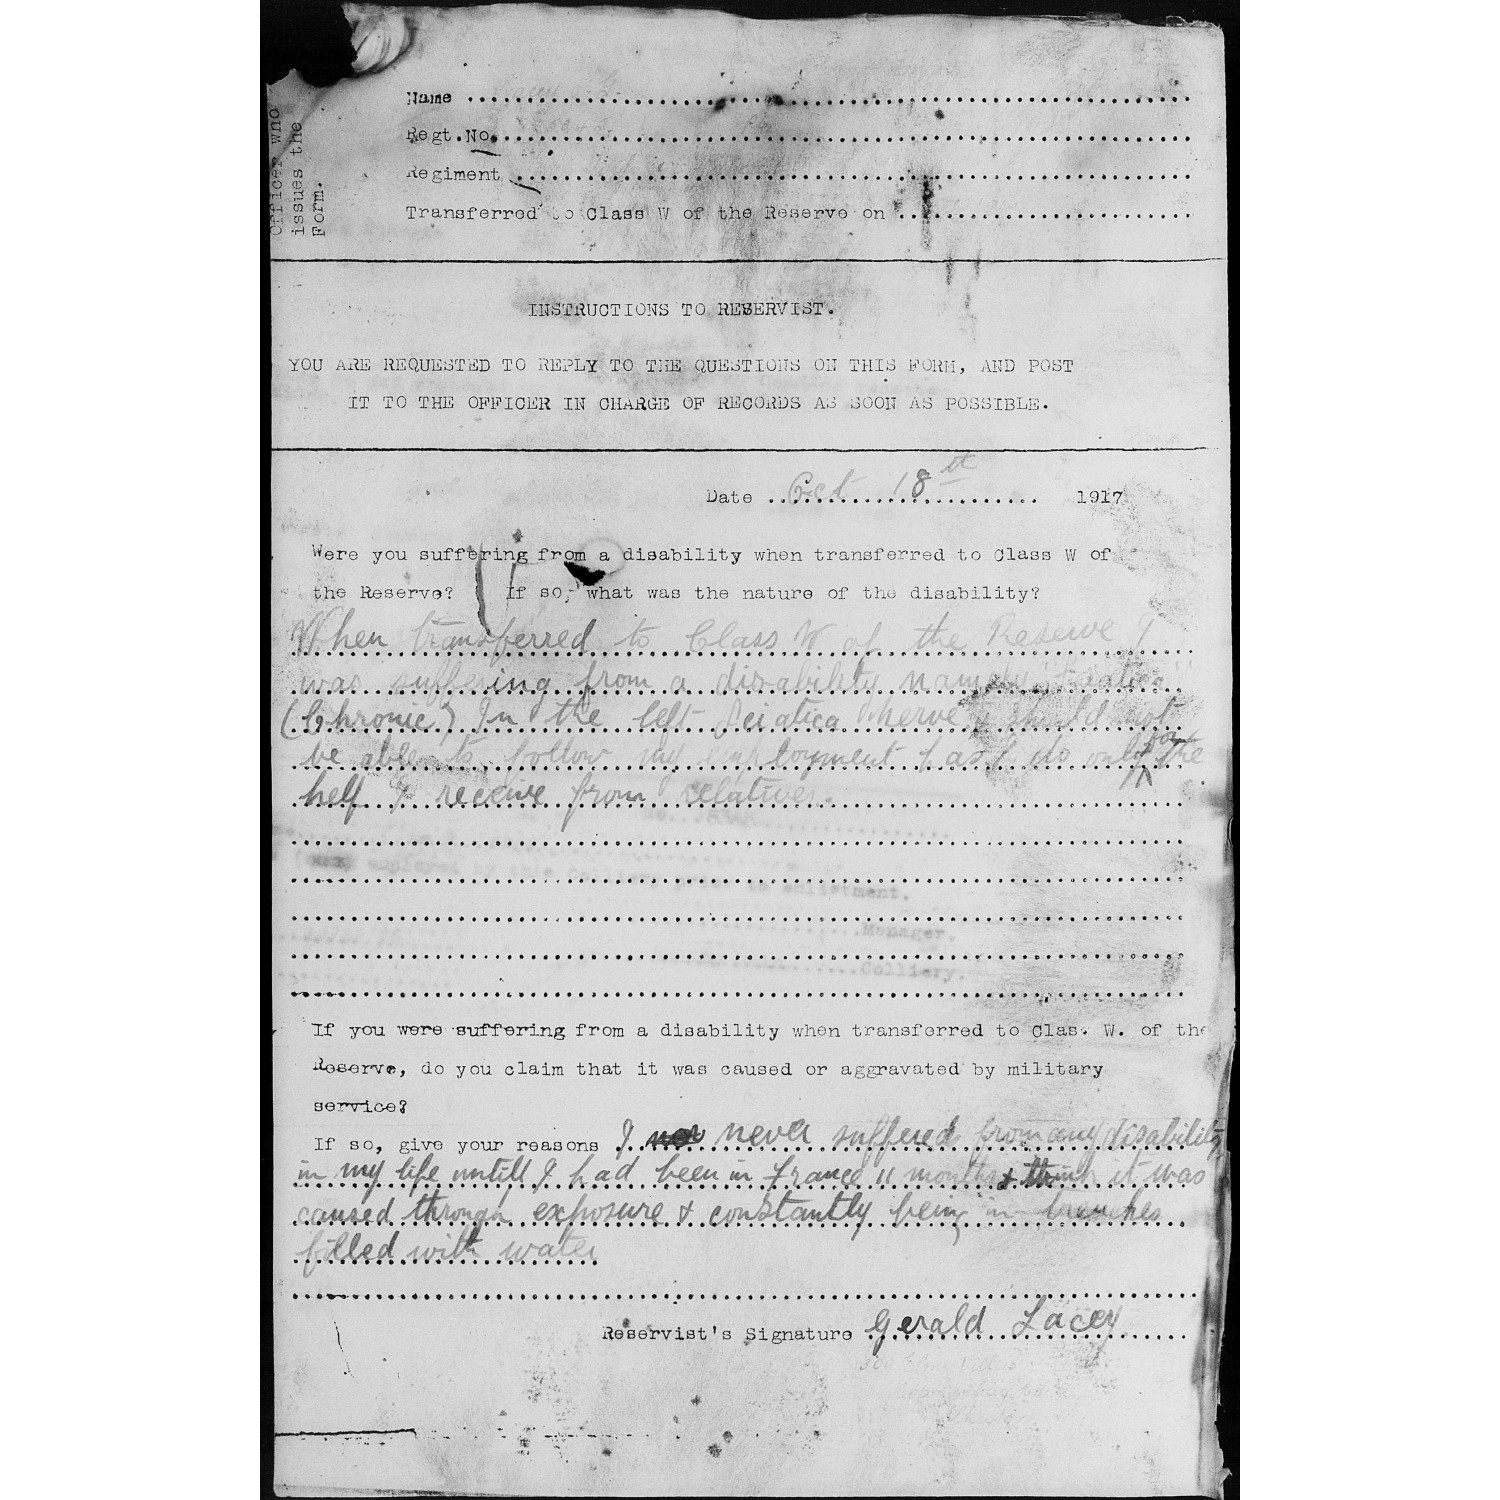 Officer who
issues the
Form.
Name
Regt.No.
Regiment
Transferred to Class W of the Reserve on
INSTRUCTIONS TO RESERVIST.
YOU ARE REQUESTED TO REPLY TO THE QUESTIONS ON THIS FORM, AND POST
IT TO THE OFFICER IN CHARGE OF RECORDS AS SOON AS POSSIBLE.
Date Oct 18th 1917
Were you suffering from a disability when transferred to Class W of
the Reserve? If so, what was the nature of the disability?
When transferred to Class W of the Reserve I
was suffering from a disability namely
(Chronic) In the left Sciatica nerve should not
be able to follow my employment as I do only for the
help I receive from relatives.
employed by this Colliery prior to enlistment.
Manager.
Colliery.
If you were suffering from a disability when transferred to Clas. W. of the
Reserve, do you claim that it was caused or aggravated by military
service?
If so, give your reasons I never suffered from any disability
in my life untill I had been in France 11 months & think it was
caused through exposure & constantly being in trenches
filled with water
Reservist's Signature Gerald Lacey